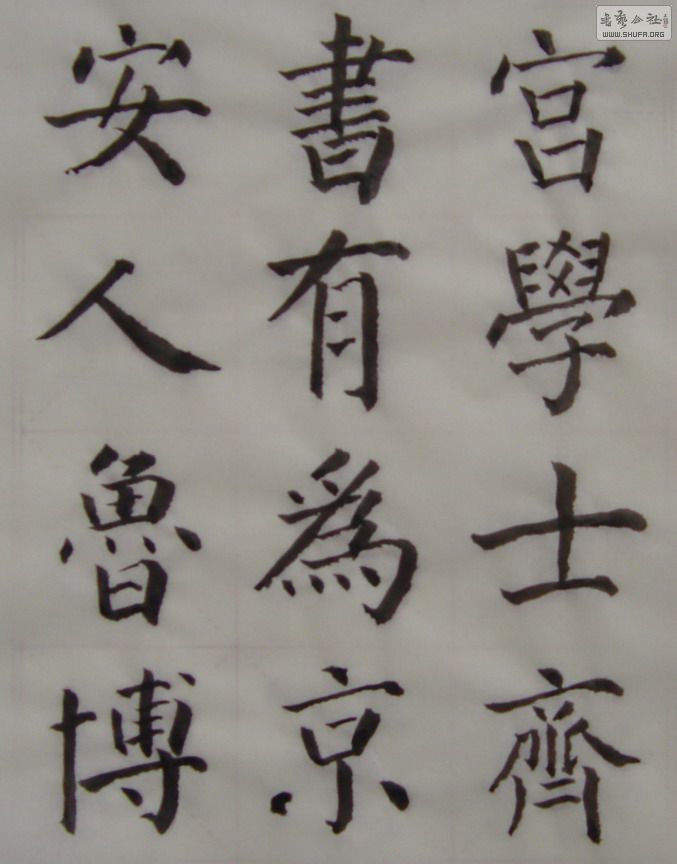 宫學士齊
書有為京
安人魯博
書藝公社
WWW.SHUFA.ORG